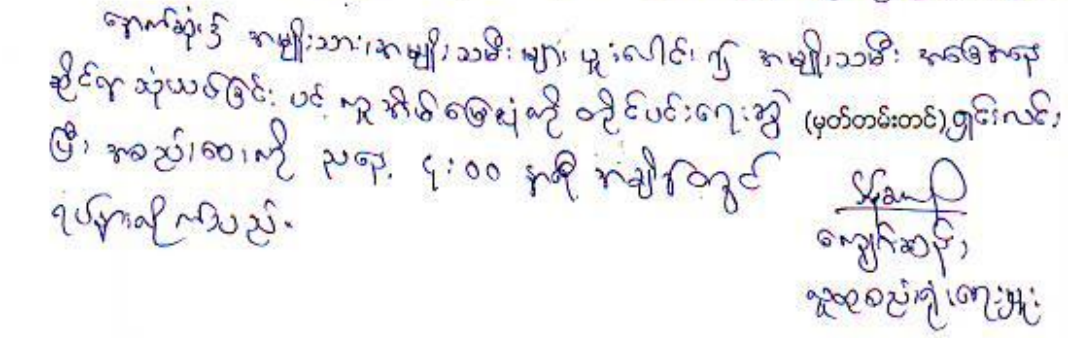 နောက်ဆုံး၌ အမျိုးသား၊ အမျိုးသမီးများ ပူးပေါင်း၍ အမျိုးသမီး အခြေအနေ
ဆိုင်ရာ သုံးသပ်ခြင်း ပင့် ကူအိမ်မြေပုံကို တိုင်ပင်ဆွေးနွေး (မှတ်တမ်းတင်) ရှင်းလင်း
ပြီး အစည်းအဝေးကို ညနေ ၄:၀၀ နာရီ အချိန်တွင်
ရပ်နားလိုက်သည်။
ကျော်ဆန်း